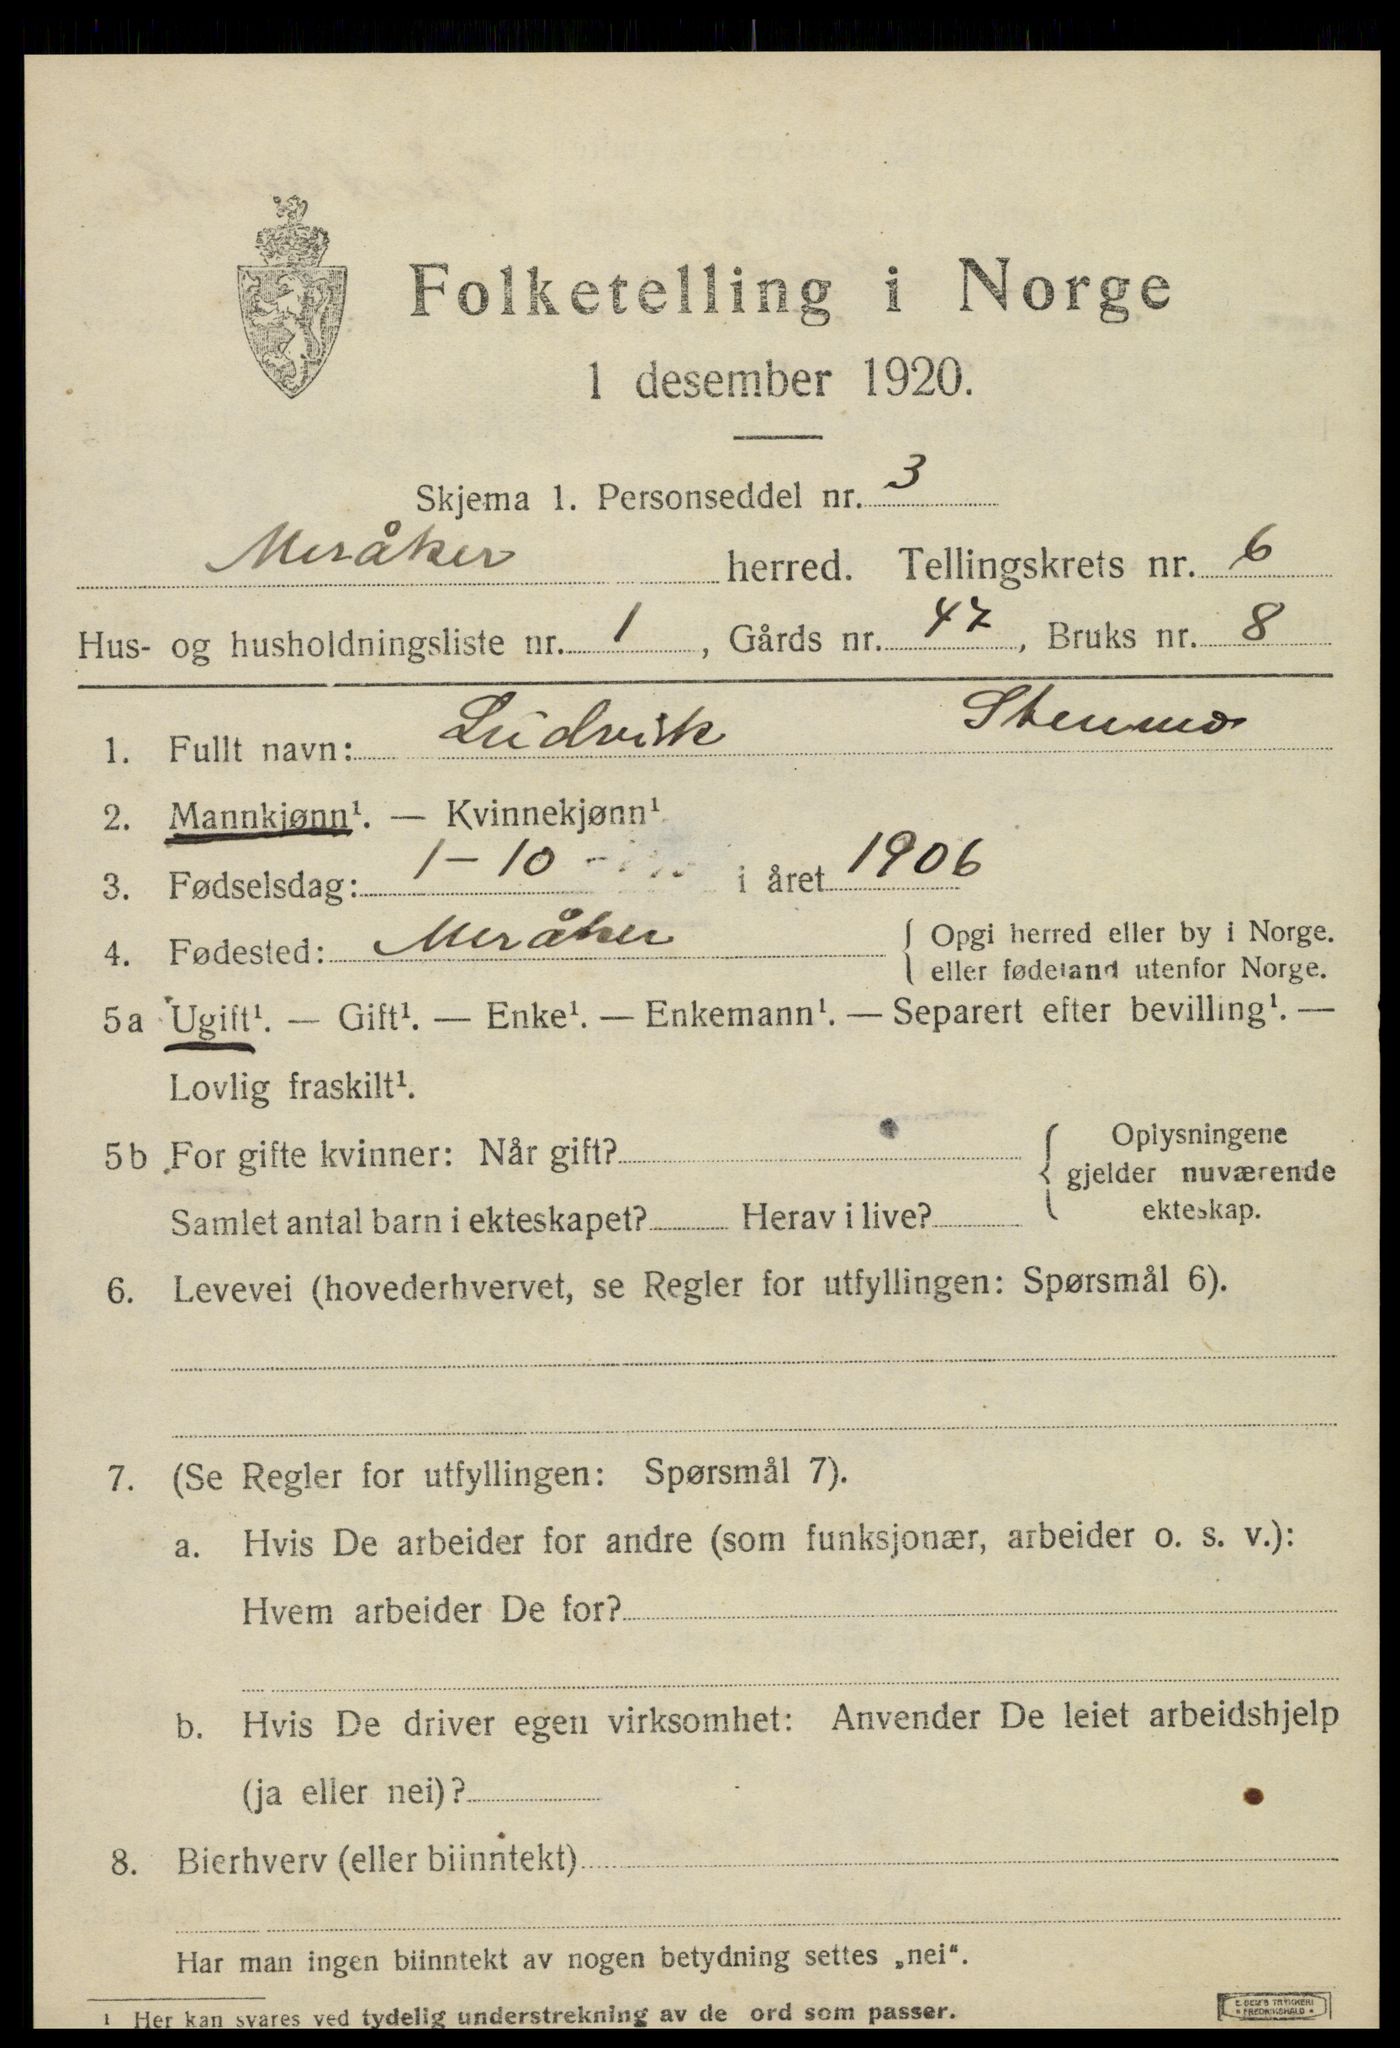 Folketelling i Norge
1 desember 1920.
Skjema 1. Personseddel nr. 3
Meråker herred. Tellingskrets nr. 6
Hus- og husholdningsliste nr. 1, Gårds nr. 47, Bruks nr. 8
1. Fullt navn: Ludvik Stenmo
2. Mannkjønn¹. — Kvinnekjønn¹
3. Fødselsdag: 1-10 i året 1906
4. Fødested: Meråker { Opgi herred eller by i Norge.
eller fødeland utenfor Norge.
5a Ugift¹. — Gift¹. — Enke¹. — Enkemann¹. — Separert efter bevilling¹. —
Lovlig fraskilt¹.
5b For gifte kvinner: Når gift? { Oplysningene
gjelder nuværende
Samlet antal barn i ekteskapet? Herav i live? ekteskap.
6. Levevei (hovederhvervet, se Regler for utfyllingen: Spørsmål 6).
7. (Se Regler for utfyllingen: Spørsmål 7).
a. Hvis De arbeider for andre (som funksjonær, arbeider o. s. v.):
Hvem arbeider De for?
b. Hvis De driver egen virksomhet: Anvender De leiet arbeidshjelp
(ja eller nei)?
8. Bierhverv (eller biinntekt)
Har man ingen biinntekt av nogen betydning settes „nei“.
¹ Her kan svares ved tydelig understrekning av de ord som passer.
E. SEM'S TRYKKERI
• FREDRIKSHALD •